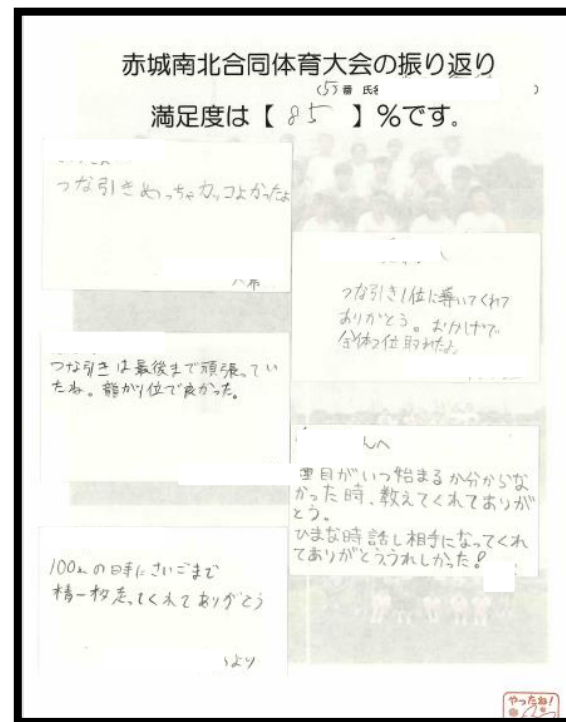 赤城南北合同体育大会の振り返り
(5)番 氏名 )
満足度は【 85 】%です。
つな引きめっちゃカッコよかったよ
つな引き1位に導いてくれて
ありがとう。おかげで
全体2位取れたよ。
つな引きは最後まで頑張ってい
たね。龍が1位で良かった。
んへ
種目がいつ始まるか分からな
かった時、教えてくれてありが
とう。
ひまな時話し相手になってくれ
てありがとううれしかった!
100mの時にさいごまで
精一杯走ってくれてありがとう
より
やったね!